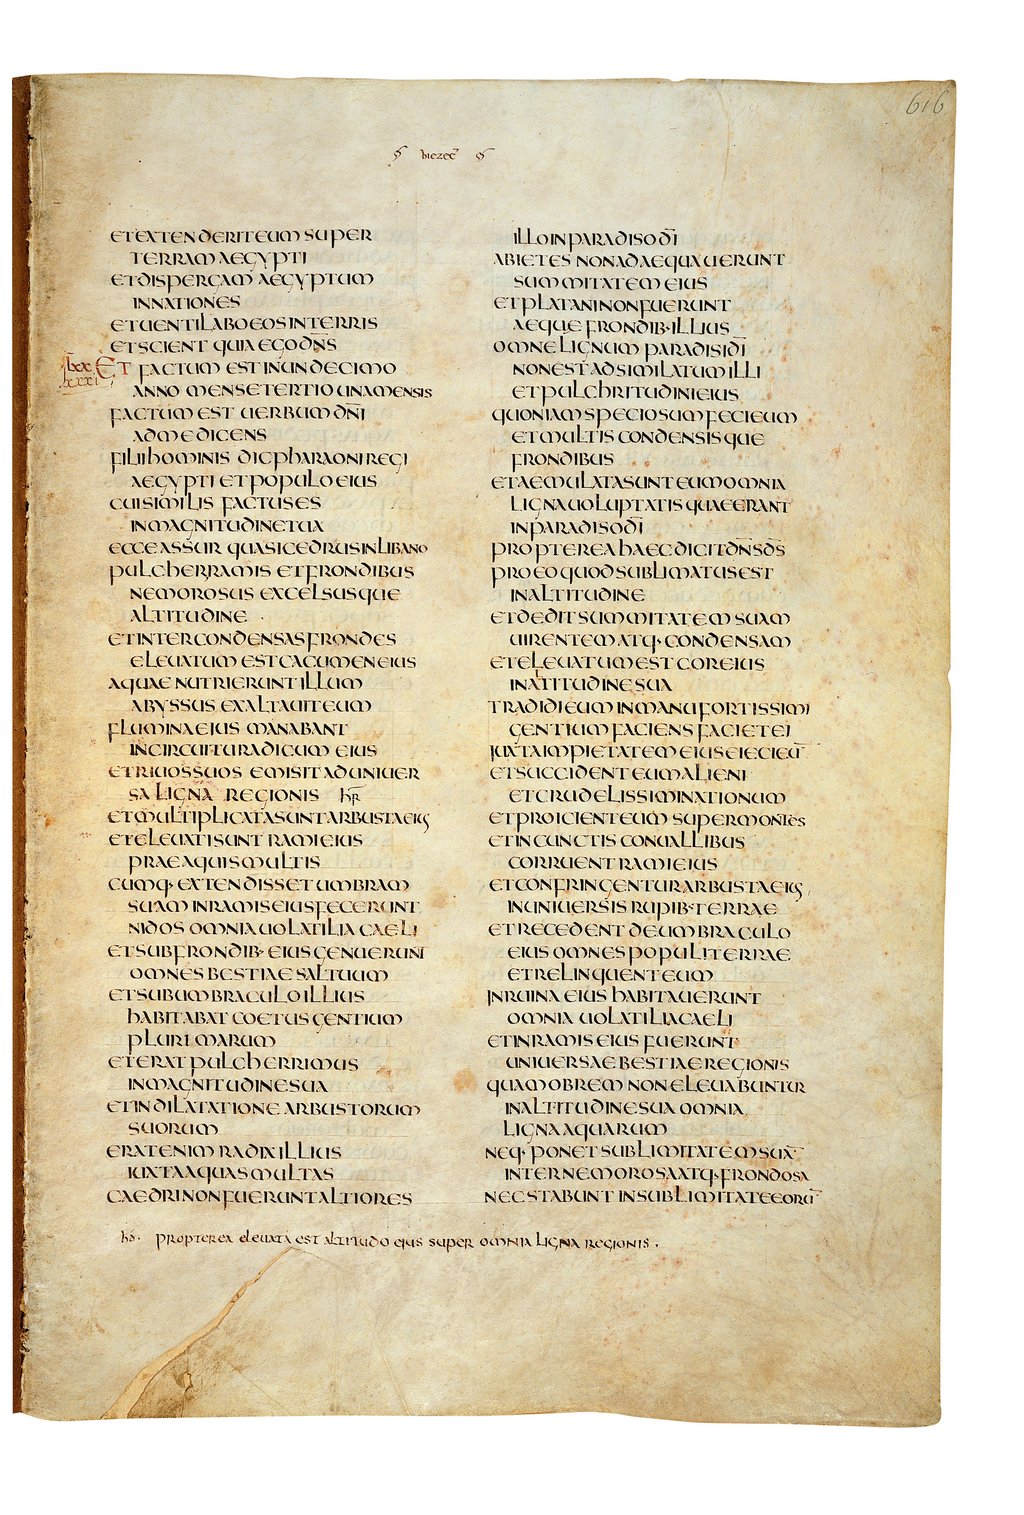 616
hiezec̄
ETEXTENDERITEUM SUPER
TERRAM AEGYPTI
ETDISPERGAM AEGYPTUM
INNATIONES
ETUENTILABOEOSINTERRIS
ETSCIENT QUIA EGODN̄S
lxx
xxxi
ET FACTUM ESTINUNDECIMO
ANNO MENSETERTIO UNAMENSIS
FACTUM EST UERBUM DN̄I
ADMEDICENS
FILIIHOMINIS DICPHARAONIREGI
AEGYPTI ETPOPULOEIUS
CUISIMILIS FACTUSES
INMAGNITUDINETUA
ECCEASSUR QUASICEDRUSINLIBANO
PULCHERRAMIS ETFRONDIBUS
NEMOROSUS EXCELSUSQUE
ALTITUDINE
ETINTERCONDENSASFRONDES
ELEUATUM ESTCACUMENEIUS
AQUAE NUTRIERUNTILLUM
ABYSSUS EXALTAUITEUM
FLUMINAEIUS MANABANT
INCIRCUITURADICUM EIUS
ETRIUOSSUOS EMISITADUNIUER
SALIGNA REGIONIS hr̄
ETMULTIPLICATASUNTARBUSTAEIUS
ETELEUATISUNT RAMIEIUS
PRAEAQUISMULTIS
CUMQ· EXTENDISSETUMBRAM
SUAM INRAMISEIUSFECERUNT
NIDOS OMNIAUOLATILIA CAELI
ETSUBFRONDIB· EIUSGENUERUNT
OMNESBESTIAE SALTUUM
ETSUBUMBRACULOILLIUS
HABITABAT COETUSGENTIUM
PLURIMARUM
ETERATPULCHERRIMUS
INMAGNITUDINESUA
ETINDILATATIONE ARBUSTORUM
SUORUM
ERATENIM RADIXILLIUS
IUXTAAQUASMULTAS
CAEDRINONFUERUNTALTIORES
ILLOINPARADISODĪ
ABIETES NONADAEQUAUERUNT
SUMMITATEM EIUS
ETPLATANINONFUERUNT
AEQUE FRONDIB·ILLIUS
OMNELIGNUM PARADISIDĪ
NONESTADSIMILATUMILLI
ETPULCHRITUDINIEIUS
QUONIAMSPECIOSUMFECIEUM
ETMULTIS CONDENSISQUE
FRONDIBUS
ETAEMULATASUNTEUMOMNIA
LIGNAUOLUPTATIS QUAEERANT
INPARADISODĪ
PROPTEREAHAECDICITDN̄SDS̄
PROEOQUODSUBLIMATUSEST
INALTITUDINE
ETDEDITSUMMITATEM SUAM
UIRENTEM ATQ· CONDENSAM
ETELEUATUMEST COREIUS
INATITUDINESUA
TRADIDIEUMINMANUFORTISSIMI
GENTIUM FACIENS FACIETEI
IUXTAIMPIETATEM EIUSEIECIEŪ
ETSUCCIDENT EUMALIENI
ETCRUDELISSIMINATIONUM
ETPROICIENTEUM SUPERMONTES
ETINCUNCTIS CONUALLIBUS
CORRUENT RAMIEIUS
ETCONFRINGENTURARBUSTAEIUS
INUNIUERSIS RUPIB·TERRAE
ETRECEDENT DEUMBRACULO
EIUS OMNES POPULITERRAE
ETRELINQUENTEUM
INRUINAEIUS HABITAUERUNT
OMNIA UOLATILIACAELI
ETINRAMIS EIUS FUERUNT
UNIUERSAEBESTIAEREGIONIS
QUAMOBREM NONELEUABUNTUR
INALTITUDINESUA OMNIA
LIGNAAQUARUM
NEQ· PONETSUBLIMITATEMSUĀ
INTERNEMOROSAATQ·FRONDOSA
NECSTABUNT INSUBLIMITATEEORŪ
hd· propterea eleuata est altitudo eius super omnia ligna regionis .